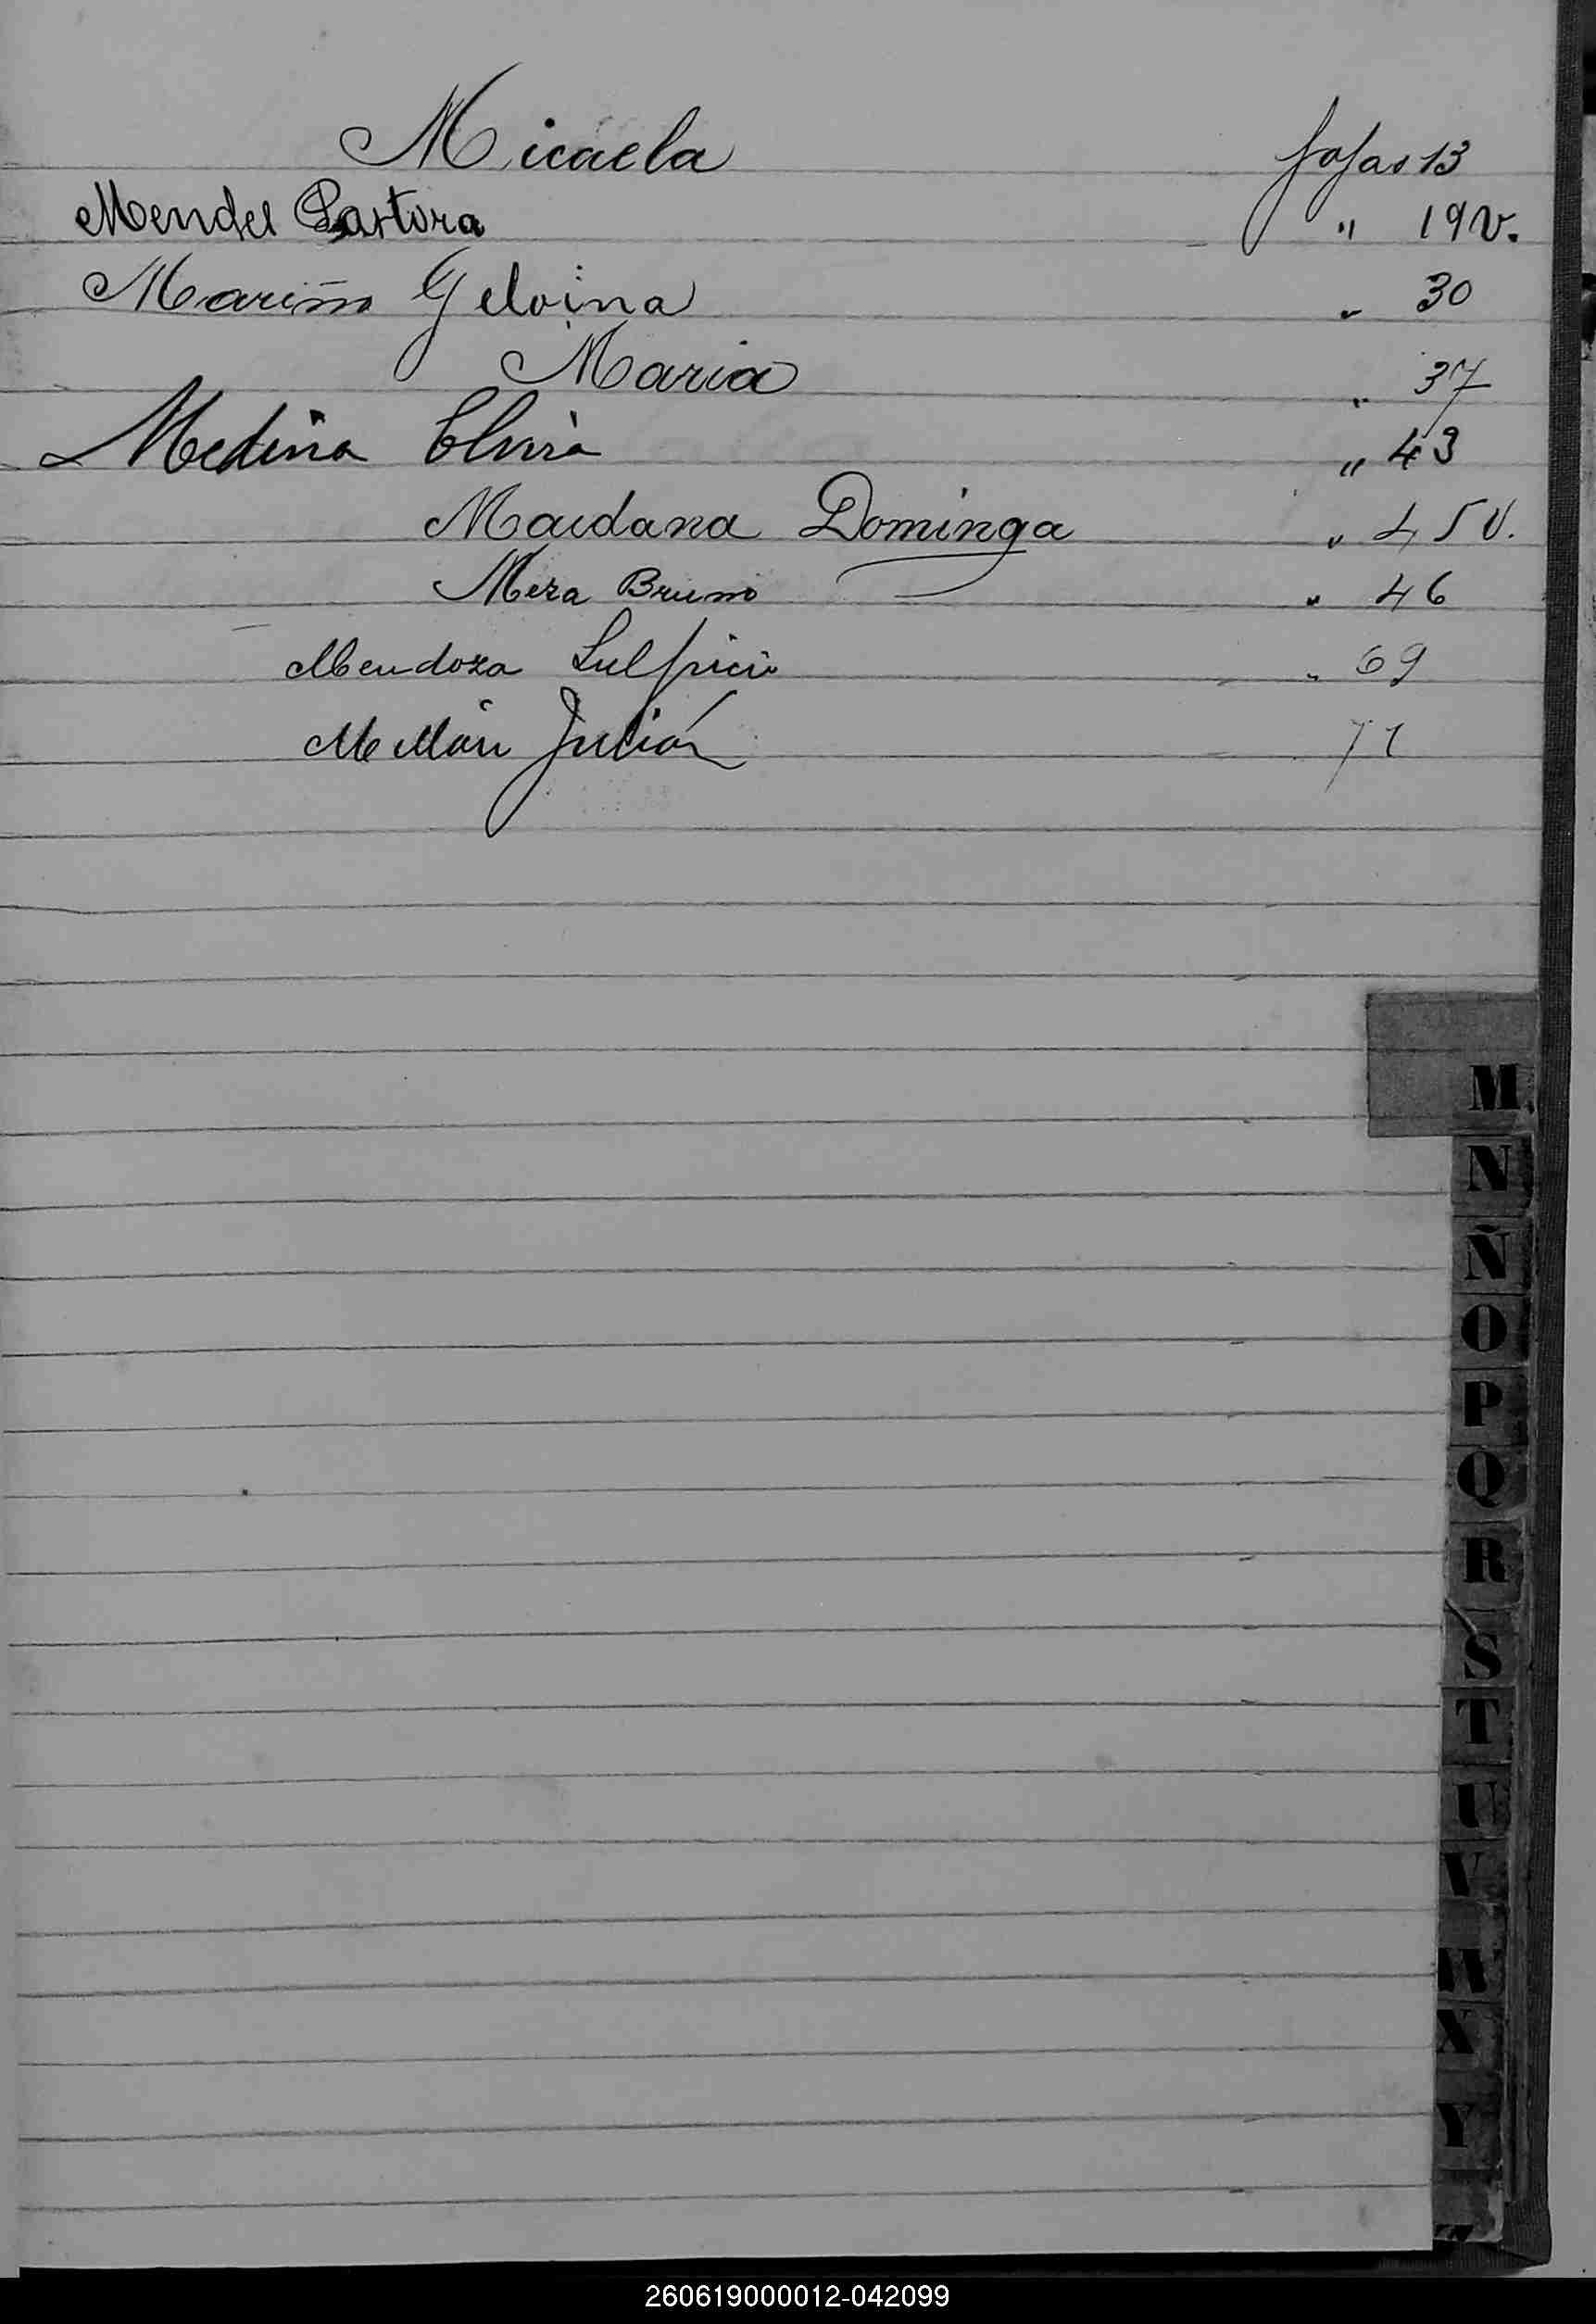 Micaela fojas 13
Mendes Pastora " 19 v.
Mariño Geloina " 30
Maria " 37
Medina Elvira " 43
Maidana Dominga " 45 v.
Meza Bruno " 46
Mendoza Sulpicio " 69
Millán Julián 71
M
N
Ñ
O
P
Q
R
S
T
U
V
W
X
Y
260619000012-042099